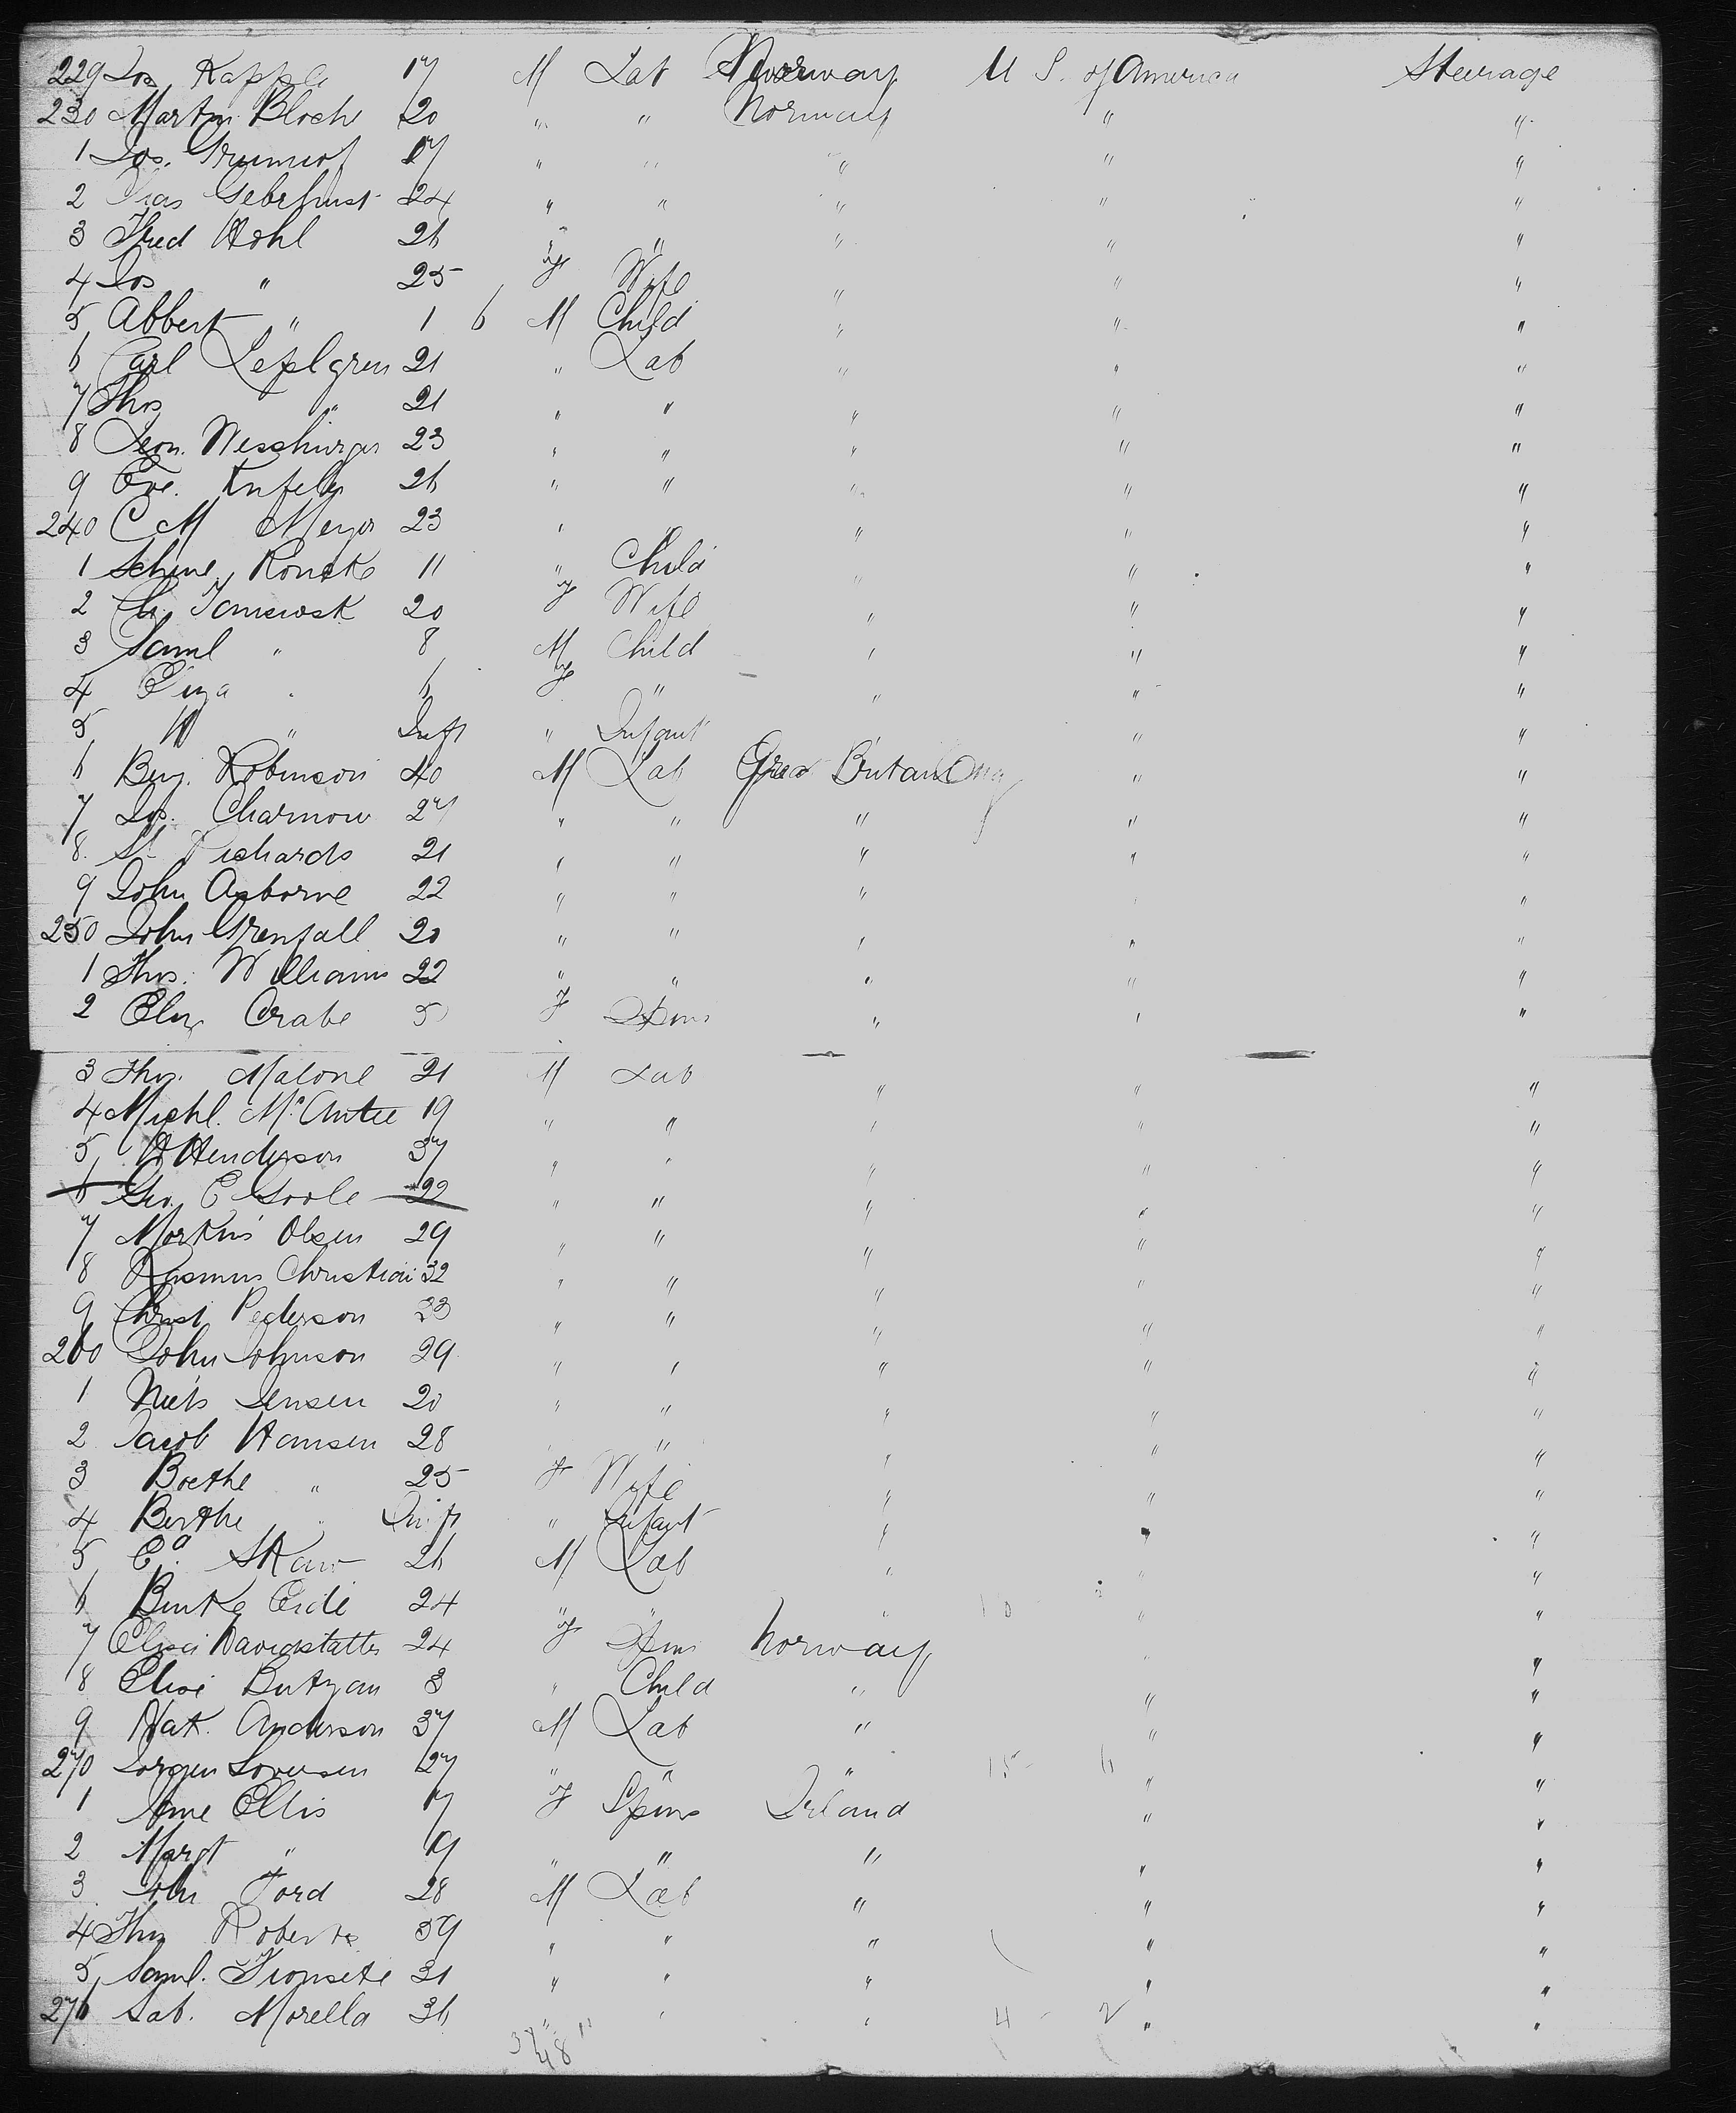 229 Jos Kapple 17 M Lab Norway U S. of America Steerage
230 Martin Bloch 20 " " Norway " "
1 Jos. 17 " " " " "
2 24 " " " " "
3 Fred Hohl 26 " " " " "
4 Jos " 25 F Wife " " "
5 Abbert " 1 6 M Child " " "
6 Carl Lepelgren 21 " Lab " " "
7 Thos " 21 " " " " "
8 Leon. 23 " " " " "
9 26 " " " " "
240 C M Meyer 23 " " " " "
1 11 " Child " " "
2 20 F Wife " " "
3 Saml " 8 M Child " " "
4 " 6 F " " " "
5 " Inft " Infant " "
6 Benj. Robinson 40 M Lab Great Britain " "
7 Jos. Charmow 27 " " " " "
8. Richards 21 " " " " "
9 John Osborne 22 " " " " "
250 John Grenfall 20 " " " " "
1 Thos. Williams 22 " " " " "
2 Crabe F Spins " " "
3 Thos. Malone 21 M Lab " " "
4 Michl. McAntee 19 " " " " "
5 H Henderson 37 " " " " "
6 Geo. E Goole 22 " " " " "
7 Morkins Olsen 29 " " " " "
8 Rasmus Christian 32 " " " " "
9 Christ. Pederson 23 " " " " "
260 John Johnson 29 " " " " "
1 Niels Jensen 20 " " " " "
2 Jacob Hansen 28 " " " " "
3 Boethe " 25 F Wife " " "
4 Berthe " Inft " Infant " " "
5 Skow 26 M Lab " " "
6 Eide 24 " " " " "
7 24 F Spins Norway " "
8 Elise 3 " Child " " "
9 Nat. Anderson 37 M Lab " " "
270 Jorgen Sorensen 27 " " " 15 - 6 " "
1 Anne Ellis 17 F Spins Irland " "
2 Margt " 19 " " " " "
3 John Ford 28 M Lab " " "
4 Thos Roberts 39 " " " " "
5 Saml. 31 " " " " "
276 Sab. Morella 36 " " " 4 - 2 " "
48